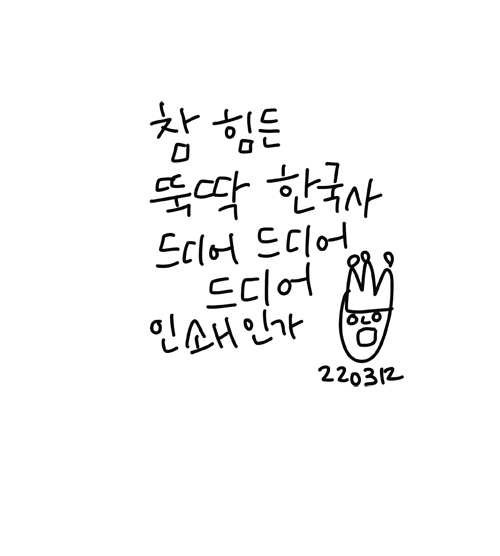 참 힘든
뚝딱 한국사
드디어 드디어
드디어
인쇄인가
220312